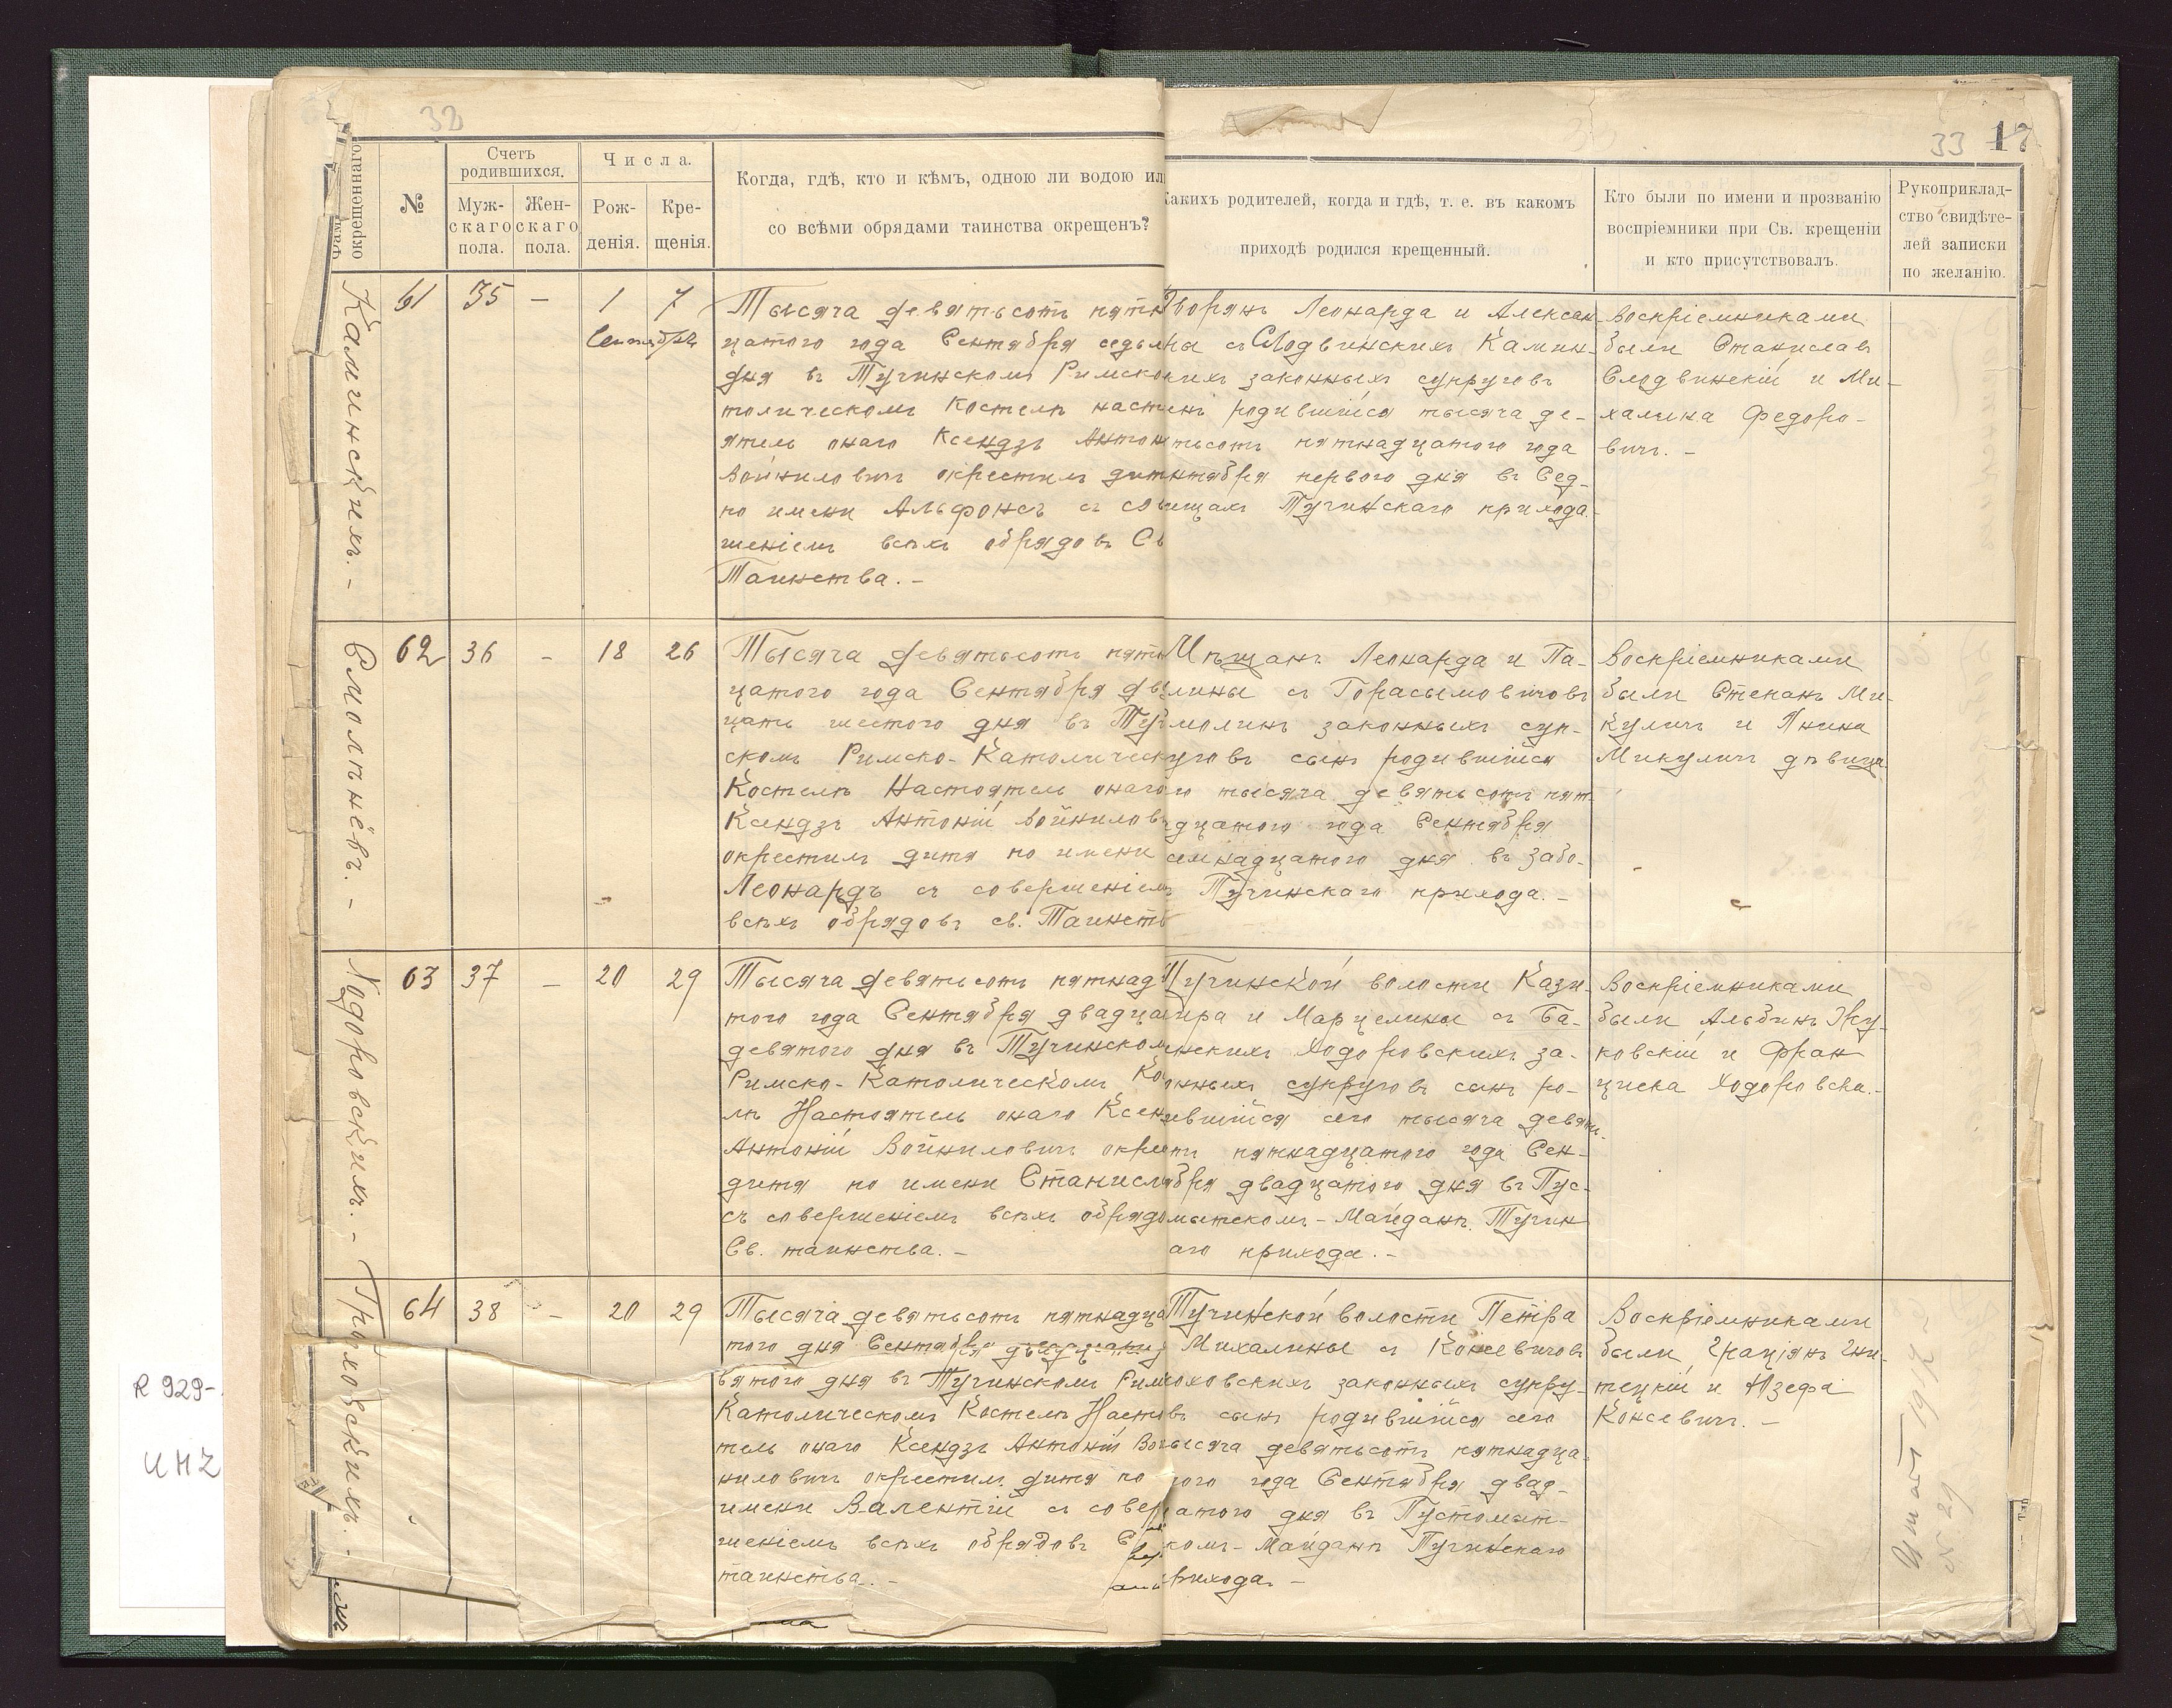 32
33 17
окрещеннаго
№
Счетъ родившихся.
Муж-скаго пола.
Жен-скаго пола.
Числа.
Рож-денія.
Кре-щенія.
Когда, гдѣ, кто и кѣмъ, одною ли водою ил
со всѣми обрядами таинства окрещенъ?
Какихъ родителей, когда и гдѣ, т. е. въ какомъ
приходѣ родился крещенный.
Кто были по имени и прозванію
воспріемники при Св. крещеніи
и кто присутствовалъ.
Рукоприклад-
ство свидѣте-
лей записки
по желанію.
Каминскихъ. -
61 35 - 1 7
Сентября
Тысяча девятьсотъ пятн
цатого года Сентября седьм
дня въ Тучинскомъ Римско
толическомъ Костелѣ наст
ятель онаго Ксендзъ Антон
Войниловичъ окрестилъ дит
по имени Альфонсъ съ сов
шеніемъ всѣхъ обрядовъ Св
Таинства. -
Дворянъ Леонарда и Алексан-
ны съ Слодвинскихъ Камин-
кихъ законныхъ супруговъ
нъ родившійся тысяча де-
тьсотъ пятнадцатого года
нтября первого дня въ Сед-
ищахъ Тучинскаго прихода.
Воспріемниками
были Станиславъ
Слодвинскій и Ми-
халина Федоро-
вичъ. -
Смолнѣёвъ. -
62 36 - 18 26
Тысяча девятьсотъ пятн
цатого года Сентября дв
цать шестого дня въ Туч
скомъ Римско-Католическ
Костелѣ Настоятель онаго
Ксендзъ Антоній Войнилов
окрестилъ дитя по имени
Леонардъ съ совершеніем
всѣхъ обрядовъ св. Таинств
Мѣщанъ Леонарда и Па-
лины съ Горасымовичовъ
молинъ законныхъ суп-
уговъ сынъ родившійся
го тысяча девятьсотъ пят-
дцатого года Сентября
семнадцатого дня въ Забо-
Тучинскаго прихода. -
Воспріемниками
были Степанъ Ми-
куличъ и Янина
Микуличъ дѣвица
Ходоровскихъ. -
63 37 - 20 29
Тысяча девятьсотъ пятнад
того года Сентября двадца
девятого дня въ Тучинском
Римско-Католическомъ Ко
лѣ Настоятель онаго Ксен
Антоній Войниловичъ окре
дитя по имени Станисла
съ совершеніемъ всѣхъ обрядо
Св. таинства. -
Тучинской волости Кази-
ира и Марцелины съ Ба-
нскихъ Ходоровскихъ за-
онныхъ супруговъ сынъ ро-
ившійся сего тысяча девять-
тъ пятнадцатого года Сен-
бря двадцатого дня въ Пус-
мытскомъ-Майданѣ Тучин
аго прихода. -
Воспріемниками
были Альбинъ Жу-
ковскій и Фран
циска Ходоровска. -
Гроховскихъ. -
64 38 - 20 29
Тысяча девятьсотъ пятнадца
того дня Сентября двадцать
вятого дня въ Тучинскомъ Рим
Католическомъ Костелѣ Насто
тель онаго Ксендзъ Антоній Вой
ниловичъ окрестилъ дитя по
имени Валентій съ совер
шеніемъ всѣхъ обрядовъ С
таинства. -
Тучинской волости Петра
Михалины съ Консевичовъ
оховскихъ законныхъ супру-
въ сынъ родившійся сего
ысяча девятьсотъ пятнадца-
ого года Сентября двад-
атого дня въ Пустомыт-
комъ-Майданѣ Тучинскаго
прихода. -
Воспріемниками
были Граціянъ Гни-
тецкій и Юзефа
Консевичъ. -
N. 29
R 929-